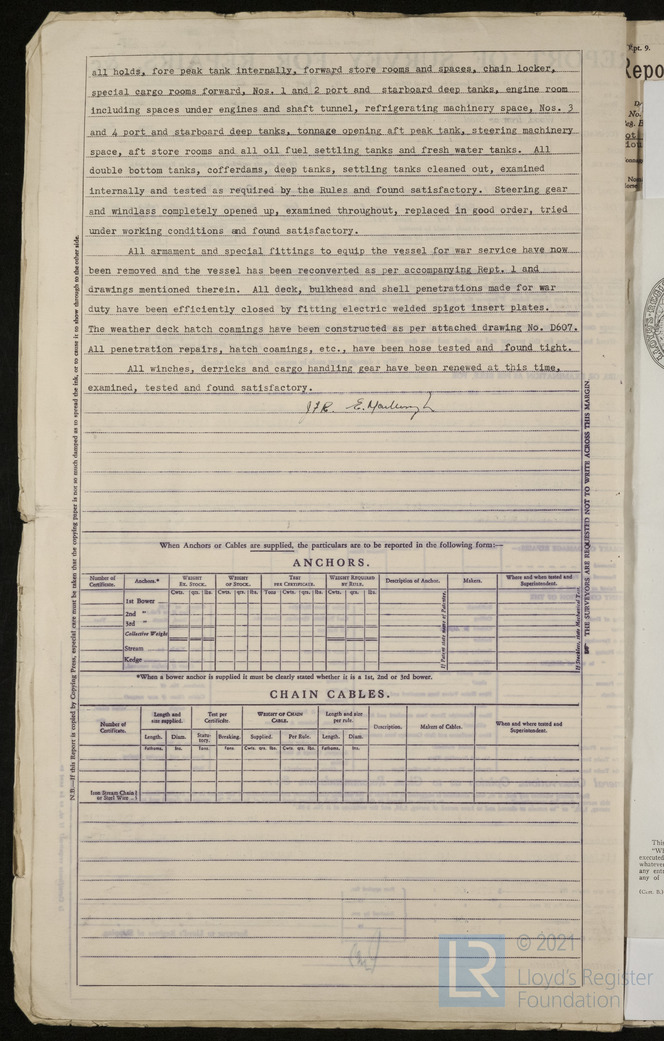 all holds, fore peak tank internally, forward store rooms and spaces, chain locker,
special cargo rooms forward, Nos. 1 and 2 port and starboard deep tanks, engine room
including spaces under engines and shaft tunnel, refrigerating machinery space, Nos. 3
and 4 port and starboard deep tanks, tonnage opening aft peak tank, steering machinery
space, aft store rooms and all oil fuel settling tanks and fresh water tanks. All
double bottom tanks, cofferdams, deep tanks, settling tanks cleaned out, examined
internally and tested as required by the Rules and found satisfactory. Steering gear
and windlass completely opened up, examined throughout, replaced in good order, tried
under working conditions and found satisfactory.
All armament and special fittings to equip the vessel for war service have now
been removed and the vessel has been reconverted as per accompanying Rept. 1 and
drawings mentioned therein. All deck, bulkhead and shell penetrations made for war
duty have been efficiently closed by fitting electric welded spigot insert plates.
The weather deck hatch coamings have been constructed as per attached drawing No. D607.
All penetration repairs, hatch coamings, etc., have been hose tested and found tight.
All winches, derricks and cargo handling gear have been renewed at this time,
examined, tested and found satisfactory.
When Anchors or Cables are supplied, the particulars are to be reported in the following form:—
ANCHORS.
Number of Certificate. Anchors.* WEIGHT EX. STOCK. WEIGHT OF STOCK. TEST PER CERTIFICATE. WEIGHT REQUIRED BY RULE. Description of Anchor. Makers. Where and when tested and Superintendent.
Cwts. qrs. lbs. Cwts. qrs. lbs. Tons Cwts. qrs. lbs. Cwts. qrs. lbs.
1st Bower
2nd "
3rd "
Collective Weight
Stream
Kedge
*When a bower anchor is supplied it must be clearly stated whether it is a 1st, 2nd or 3rd bower.
CHAIN CABLES.
Number of Certificate. Length and size supplied. Test per Certificate. WEIGHT OF CHAIN CABLE. Length and size per rule. Description. Makers of Cables. When and where tested and Superintendent.
Length. Diam. Statutory. Breaking. Supplied. Per Rule. Length. Diam.
Fathoms. Ins. Tons. Tons. Cwts. qrs. lbs. Cwts. qrs. lbs. Fathoms. Ins.
Iron Stream Chain
or Steel Wire
N.B.—If this Report is copied by Copying Press, especial care must be taken that the copying paper is not so much damped as to spread the ink, or to cause it to show through to the other side.
THE SURVEYORS ARE REQUESTED NOT TO WRITE ACROSS THIS MARGIN.
Rpt. 9.
LR
© 2021
Lloyd's Register
Foundation